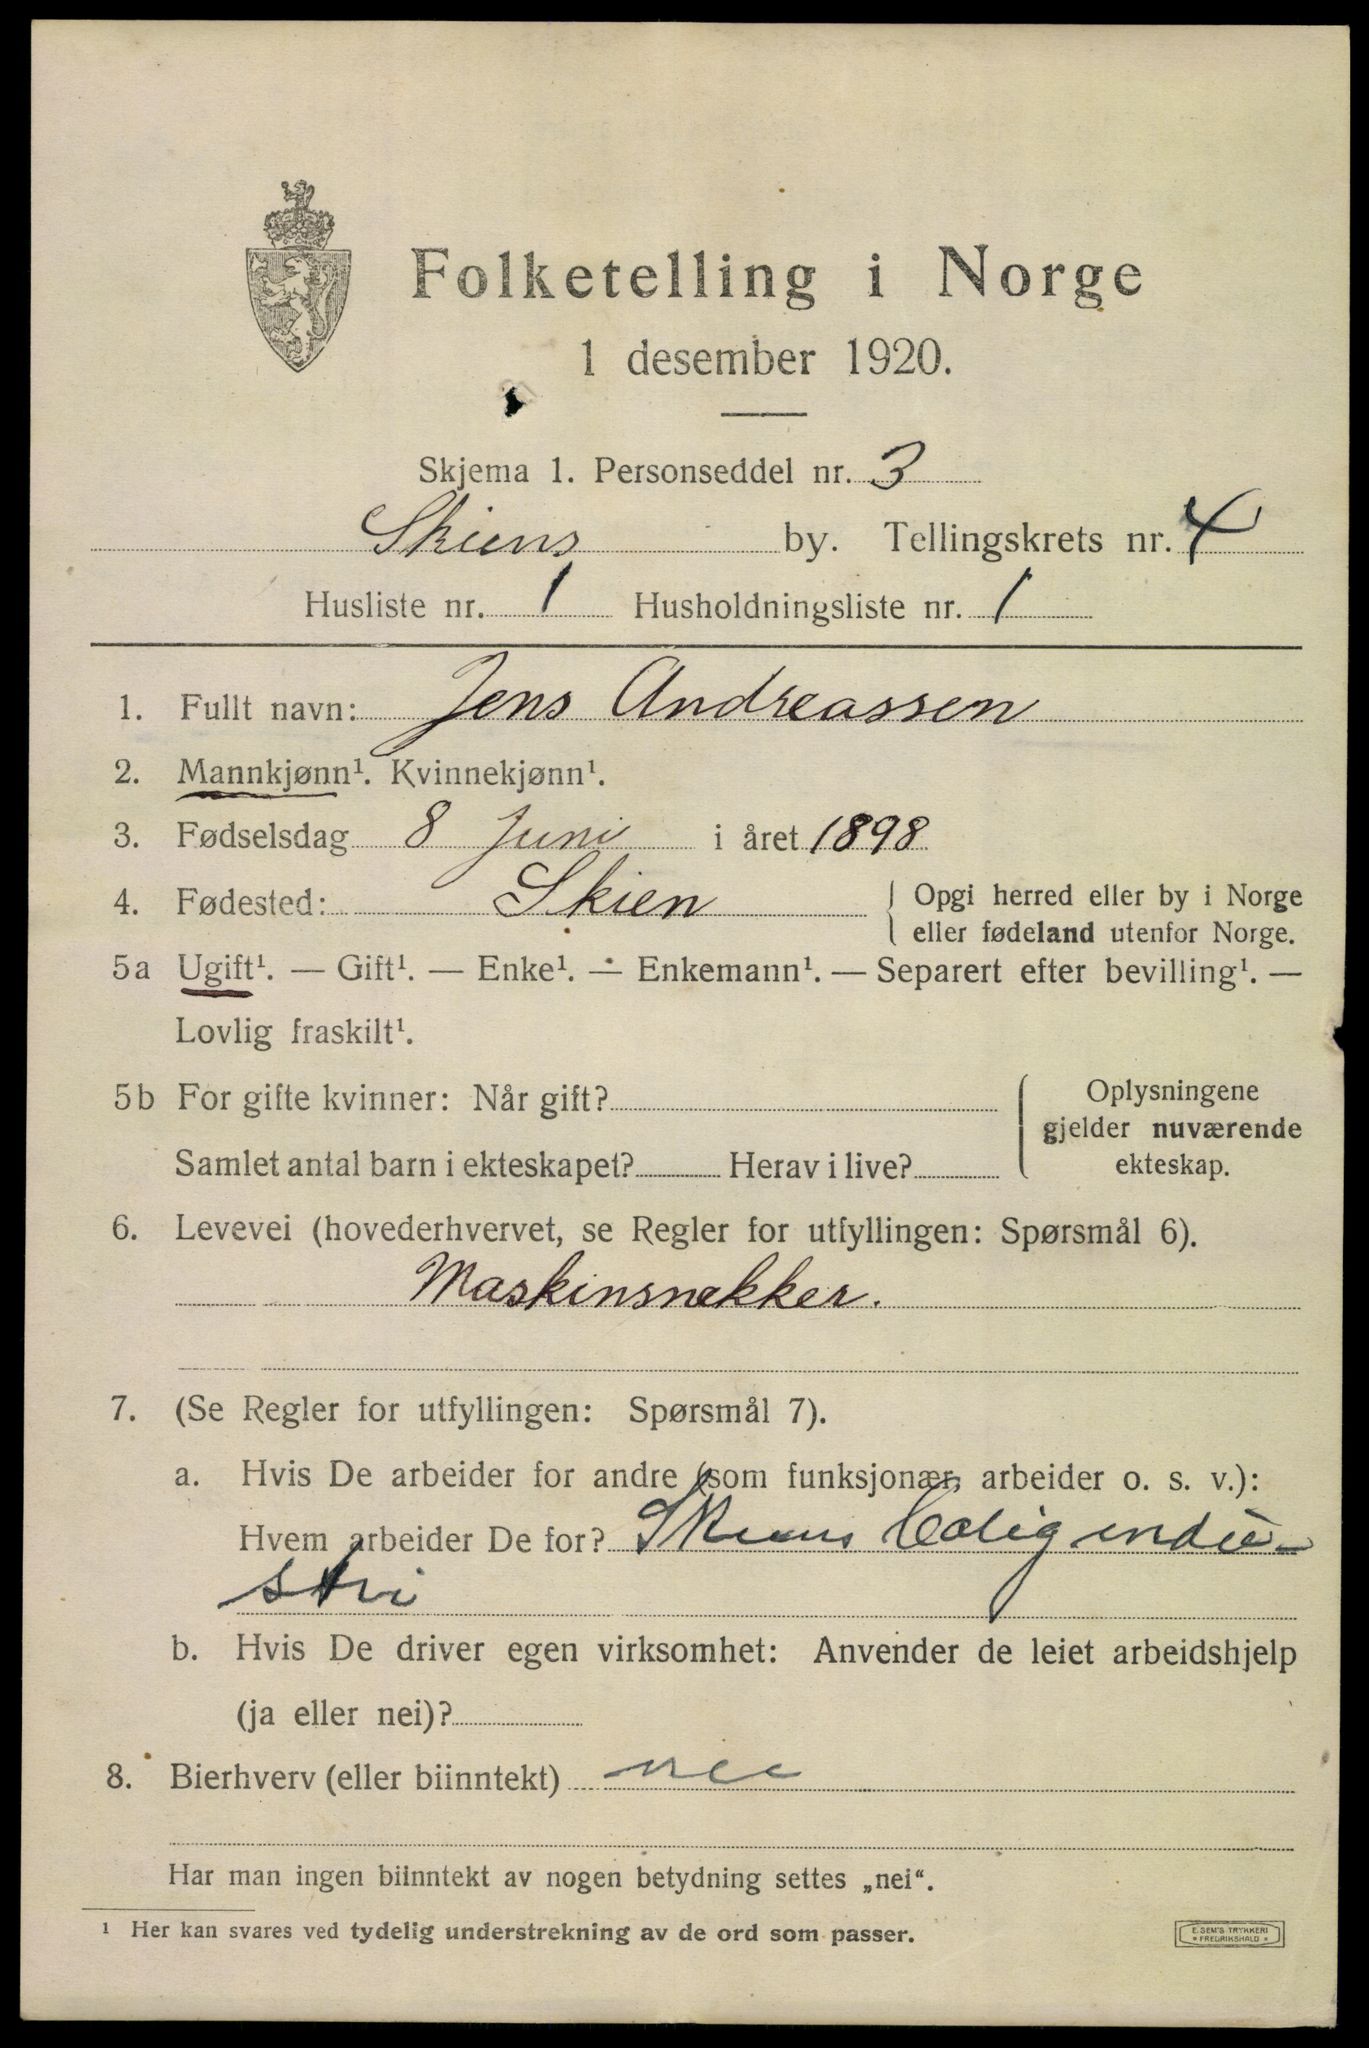 Folketelling i Norge
1 desember 1920.
Skjema 1. Personseddel nr. 3
Skiens by. Tellingskrets nr. 4
Husliste nr. 1 Husholdningsliste nr. 1
1. Fullt navn: Jens Andreassen
2. Mannkjønn¹. Kvinnekjønn¹.
3. Fødselsdag 8 Juni i året 1898
4. Fødested: Skien { Opgi herred eller by i Norge
eller fødeland utenfor Norge.
5a Ugift¹. — Gift¹. — Enke¹. — Enkemann¹. — Separert efter bevilling¹. —
Lovlig fraskilt¹.
5b For gifte kvinner: Når gift?
Samlet antal barn i ekteskapet? Herav i live?
{ Oplysningene
gjelder nuværende
ekteskap.
6. Levevei (hovederhvervet, se Regler for utfyllingen: Spørsmål 6).
Maskinsnekker.
7. (Se Regler for utfyllingen: Spørsmål 7).
a. Hvis De arbeider for andre (som funksjonær, arbeider o. s. v.):
Hvem arbeider De for? Skiens Boligindu-
stri
b. Hvis De driver egen virksomhet: Anvender de leiet arbeidshjelp
(ja eller nei)?
8. Bierhverv (eller biinntekt) nei
Har man ingen biinntekt av nogen betydning settes „nei“.
¹ Her kan svares ved tydelig understrekning av de ord som passer.
E. SEM'S TRYKKERI
* FREDRIKSHALD *